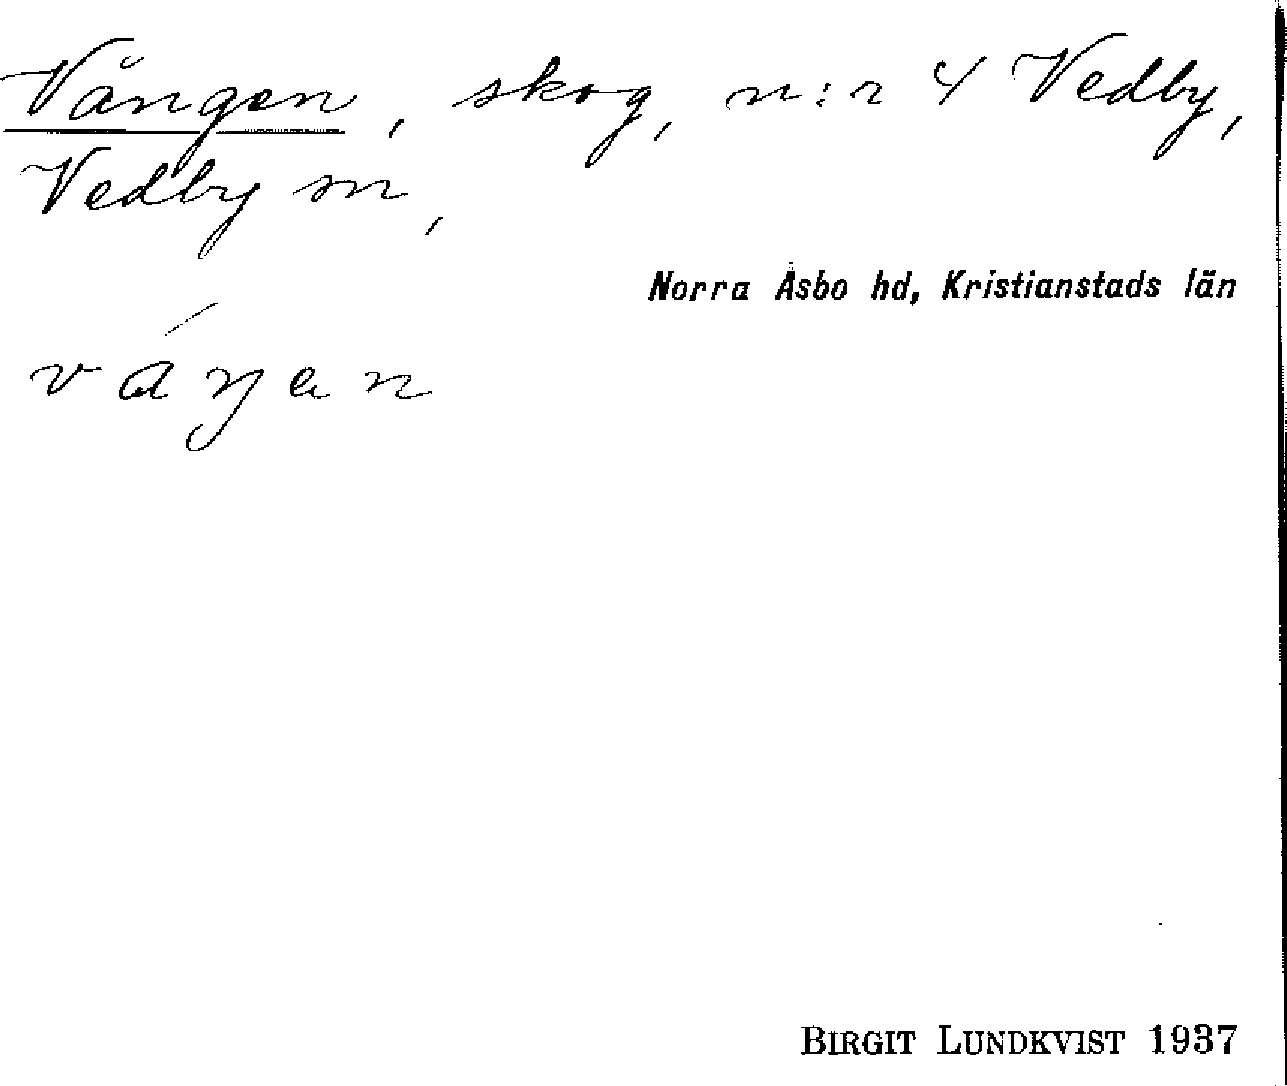 Vången, skog, n:r 4 Vedby,
Vedby sn,
Norra Åsbo hd, Kristianstads län
váŋan
BIRGIT LUNDKVIST 1937